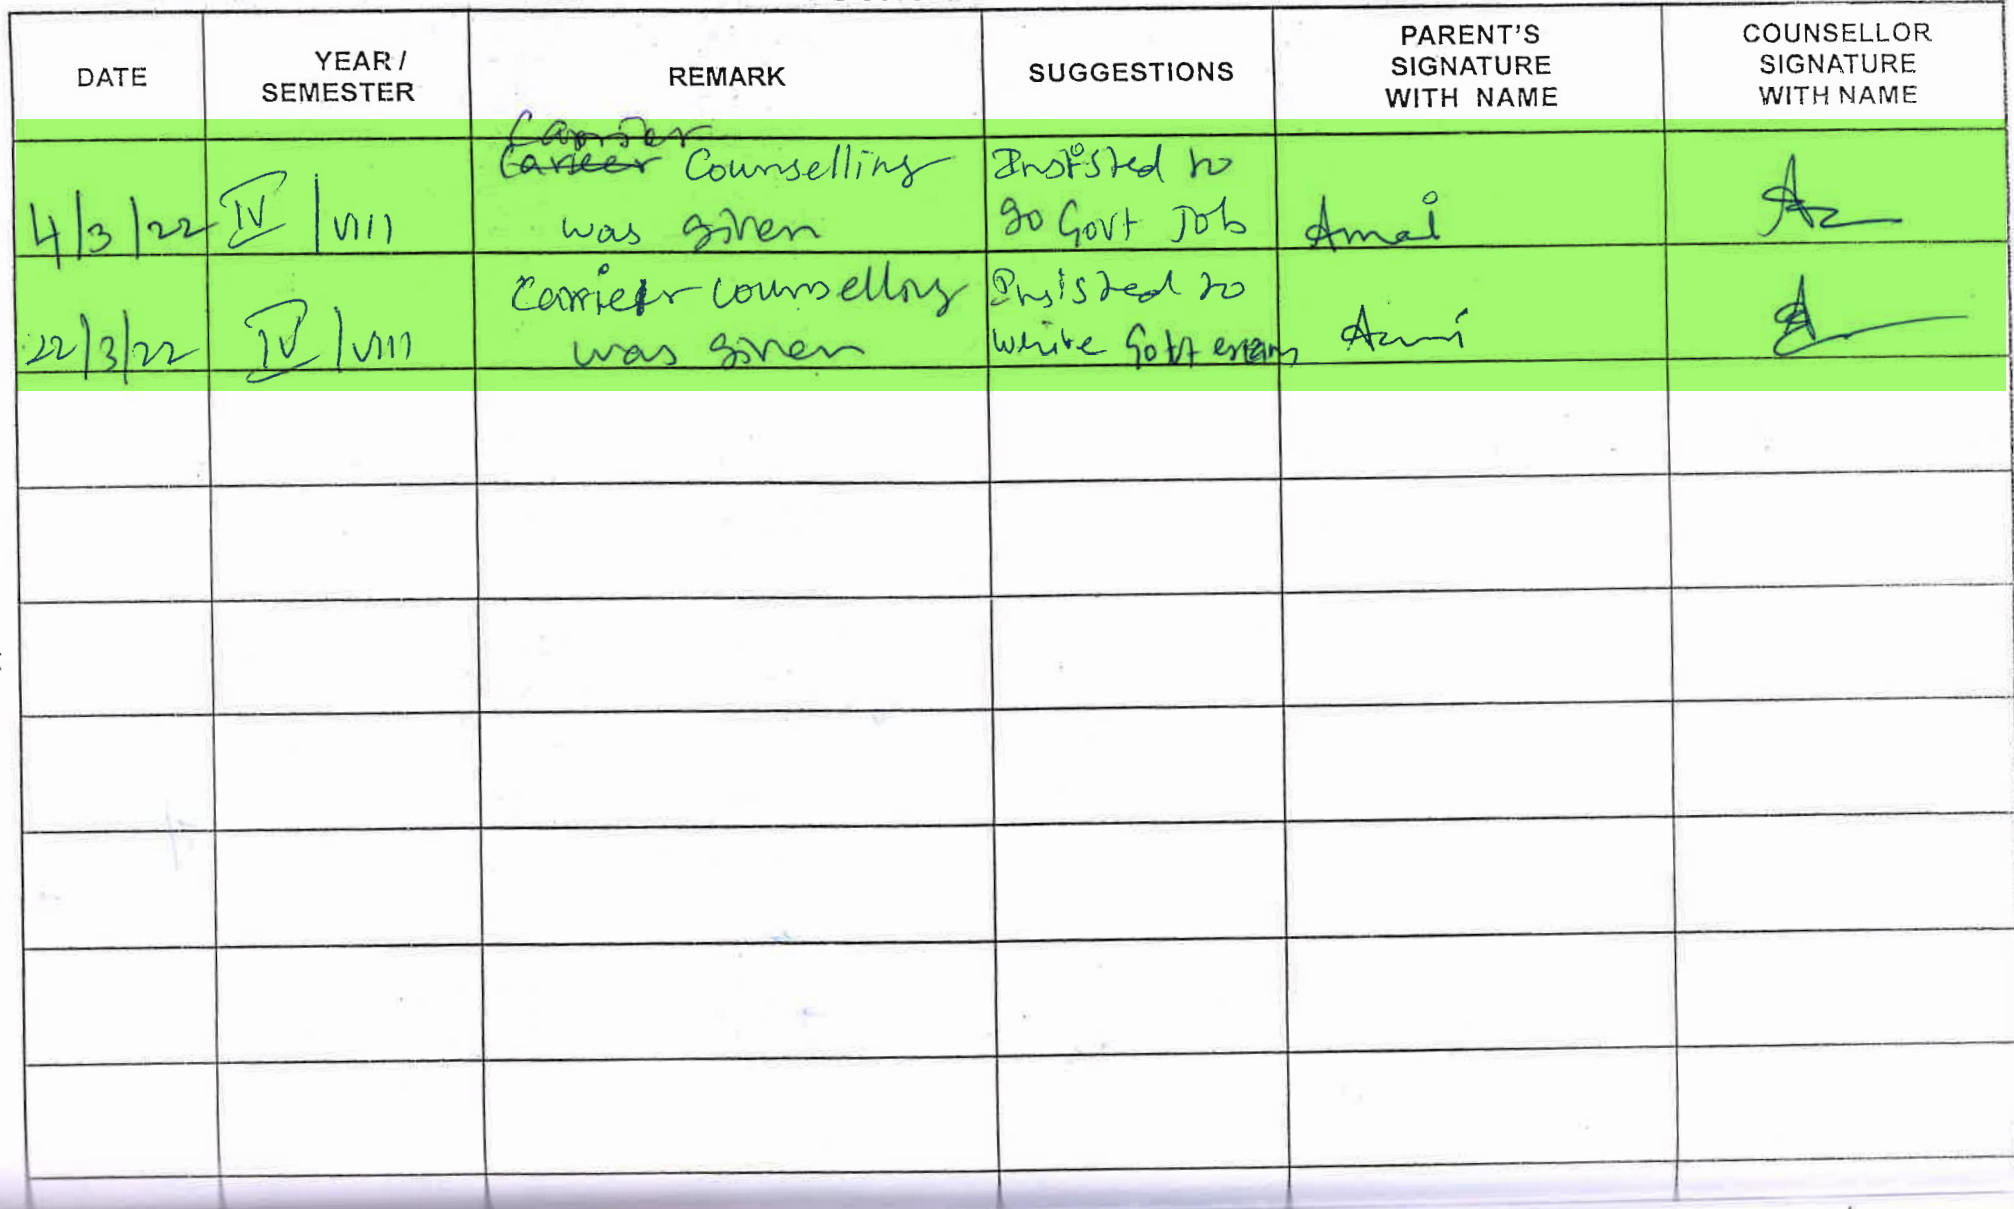 DATE
YEAR /
SEMESTER
REMARK
SUGGESTIONS
PARENT'S
SIGNATURE
WITH NAME
COUNSELLOR
SIGNATURE
WITH NAME
4/3/22
IV / VIII
Carrier
Career Counselling
was given
Insisted to
go Govt Job
Amai
22/3/22
IV / VIII
Carrier counselling
was given
Insisted to
write Govt exam